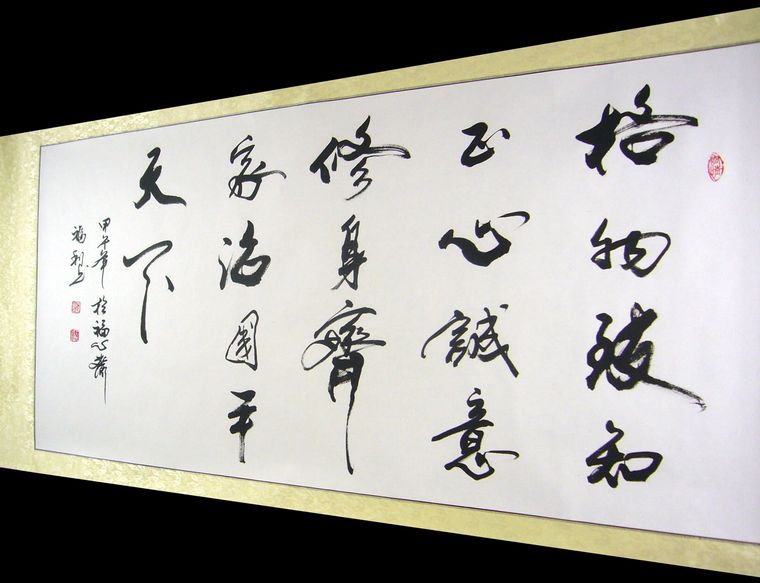 格物致知
正心誠意
修身齊
家治國平
天下
甲午年於福心齋
福利書